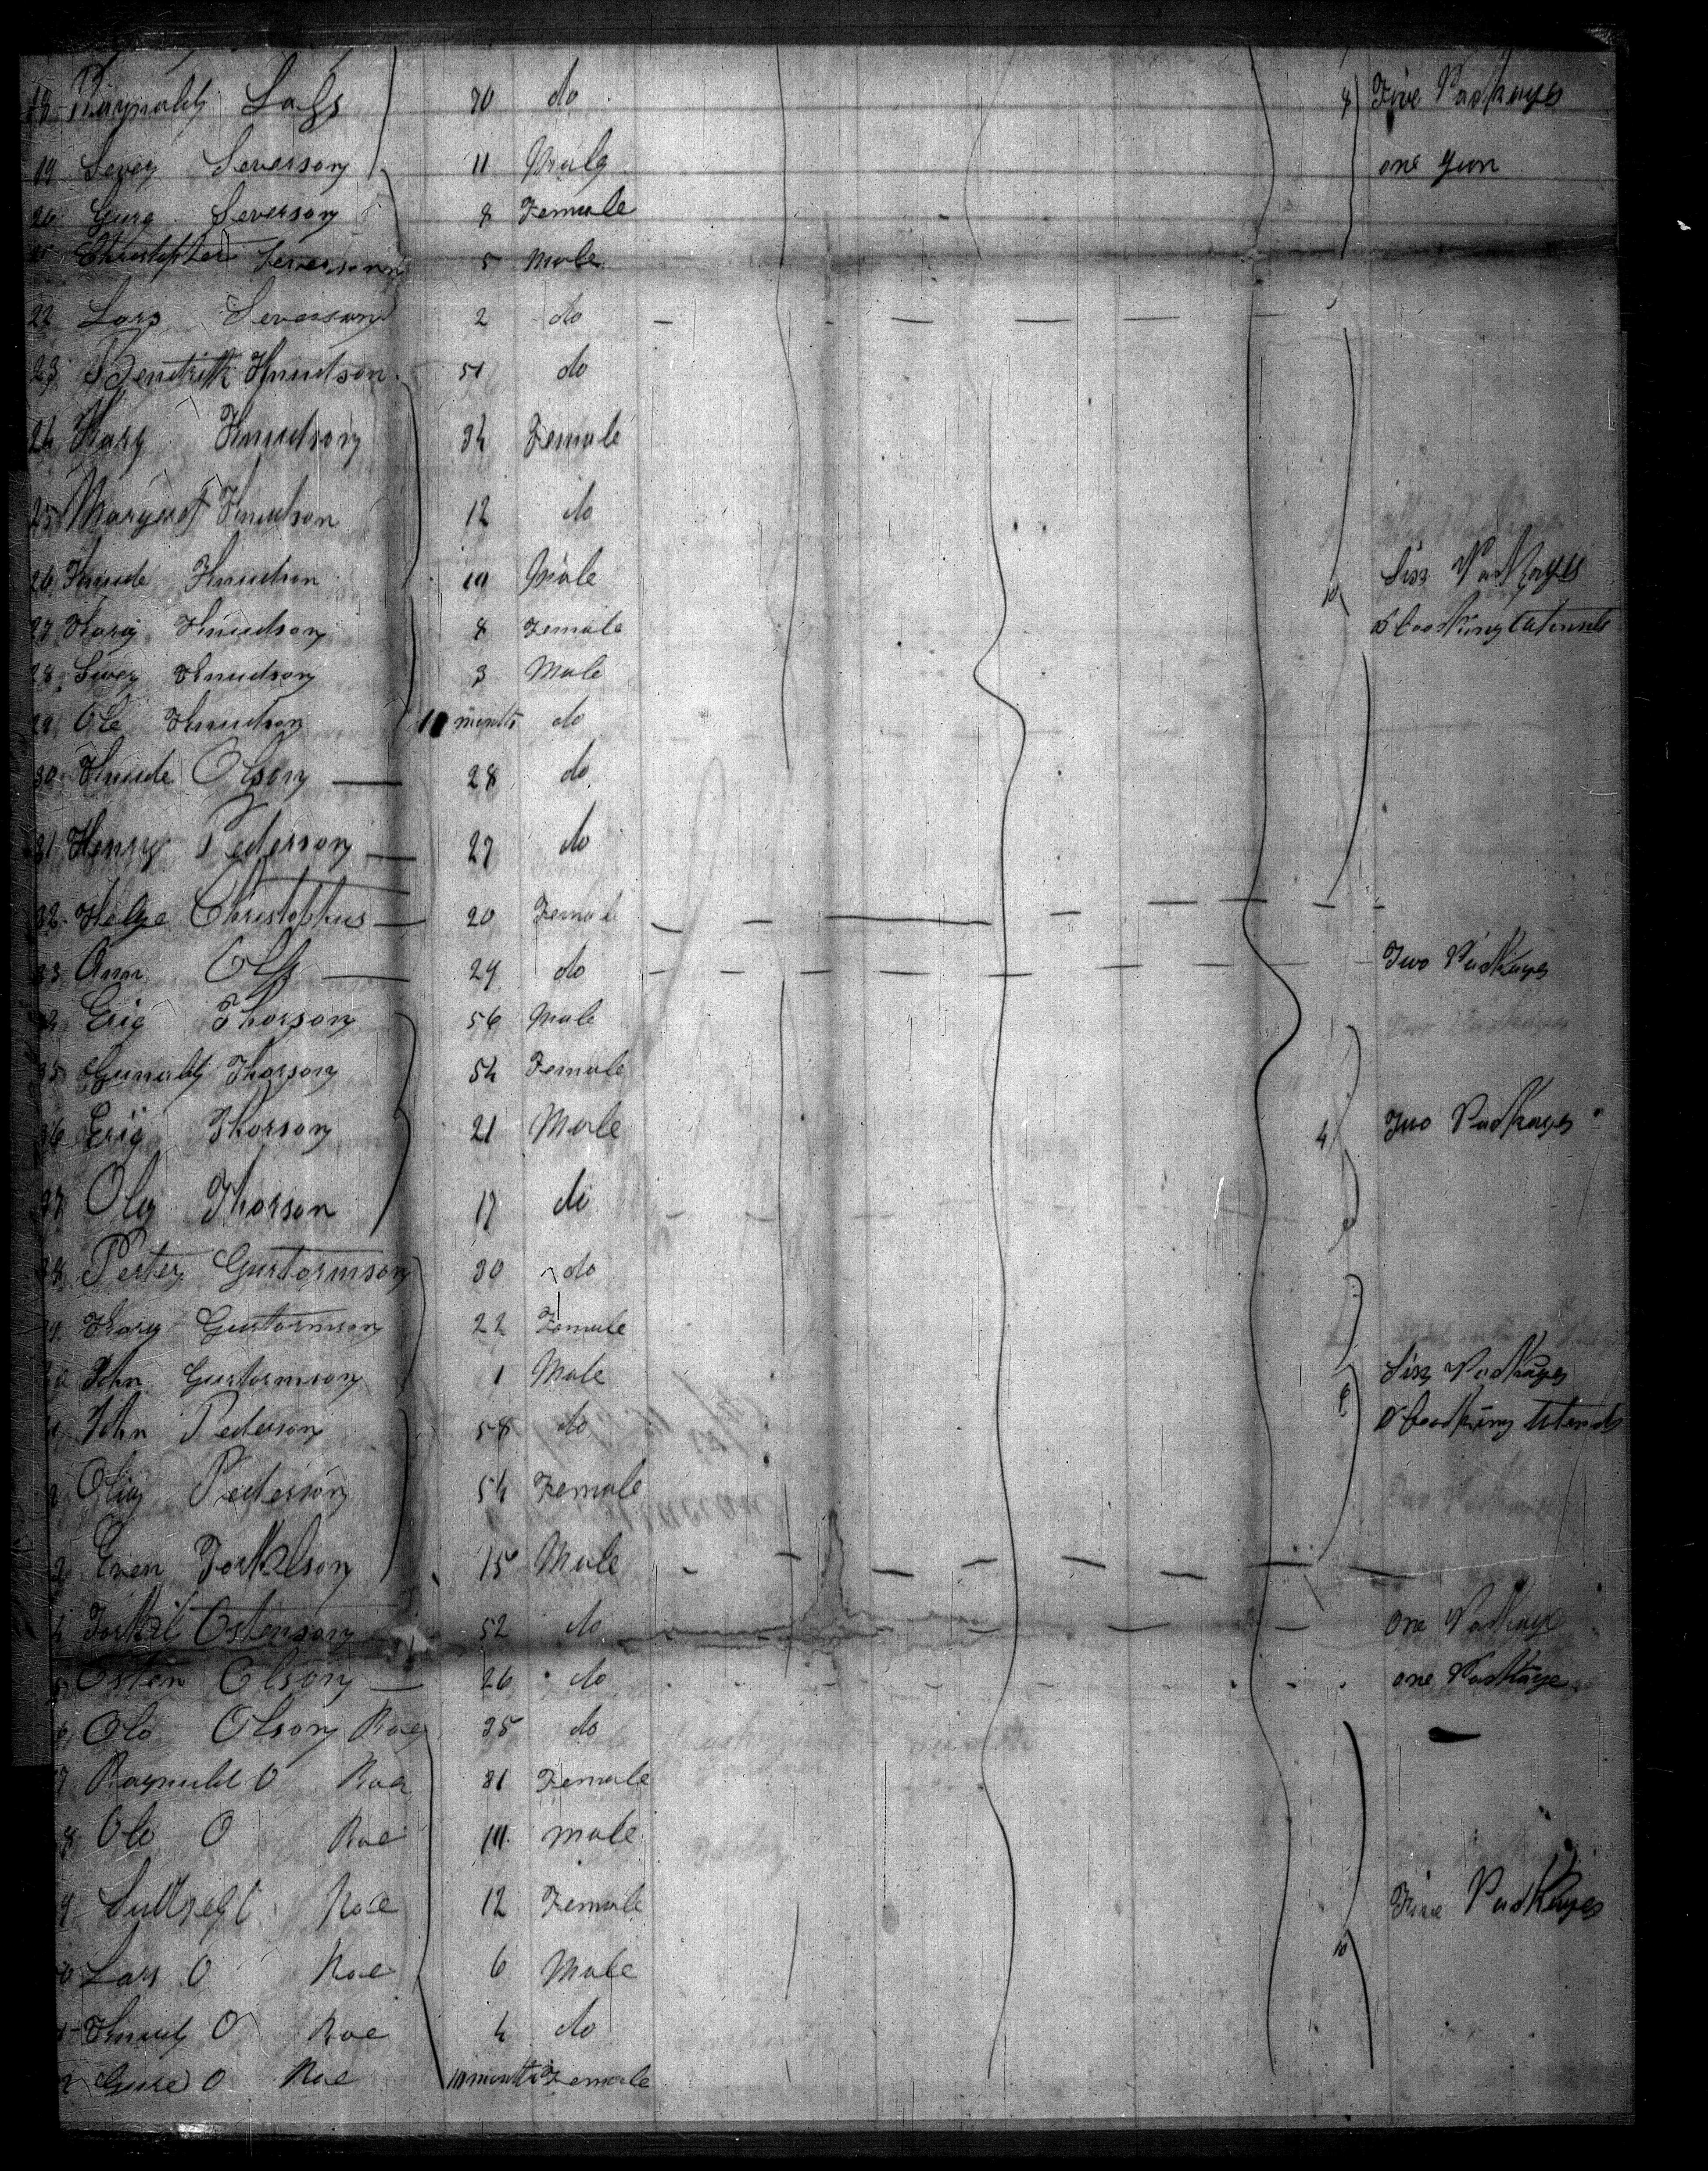 18 Ragnald Lafs 30 do 4 Five Packages
19 Sever Severson 11 Male one gun
20 Gure Severson 8 Female
21 Christopher Severson 5 Male
22 Lars Severson 2 do
23 Bendrik Knudson 51 do
24 Kary Knudson 34 Female
25 Margret Knudson 12 do
26 Knude Knudson 10 Male 10 Six Packages
27 Kary Knudson 8 Female & Cooking Utensils
28 Sivey Knudson 3 Male
29 Ole Knudson 10 months do
30 Knude Olson 28 do
31 Henry Pederson 27 do
32 Helge Christophus 20 Female
33 Ann Ols 24 do Two Packages
34 Erig Thorson 56 Male
35 Gunald Thorson 54 Female
36 Erig Thorson 21 Male 4 Two Packages
37 Oly Thorson 17 do
38 Perter Gurtormson 30 do
39 Kary Gurtormson 22 Female
40 John Gurtormson 1 Male 6 Six Packages
41 John Pederson 58 do & Cooking Utensils
2 Olig Pederson 54 Female
3 Even Torkelson 15 Male
4 Torkil Ostenson 52 do one Package
5 Osten Olson 26 do one Package
6 Olo Olson Roe 35 do
7 Ragnuld O Roe 31 Female
8 Olo O Roe 14 male
9 Roe 12 Female Five Packages
0 Lars O Roe 6 Male 10
1 Knud O Roe 4 do
2 Gure O Roe 10 months Female